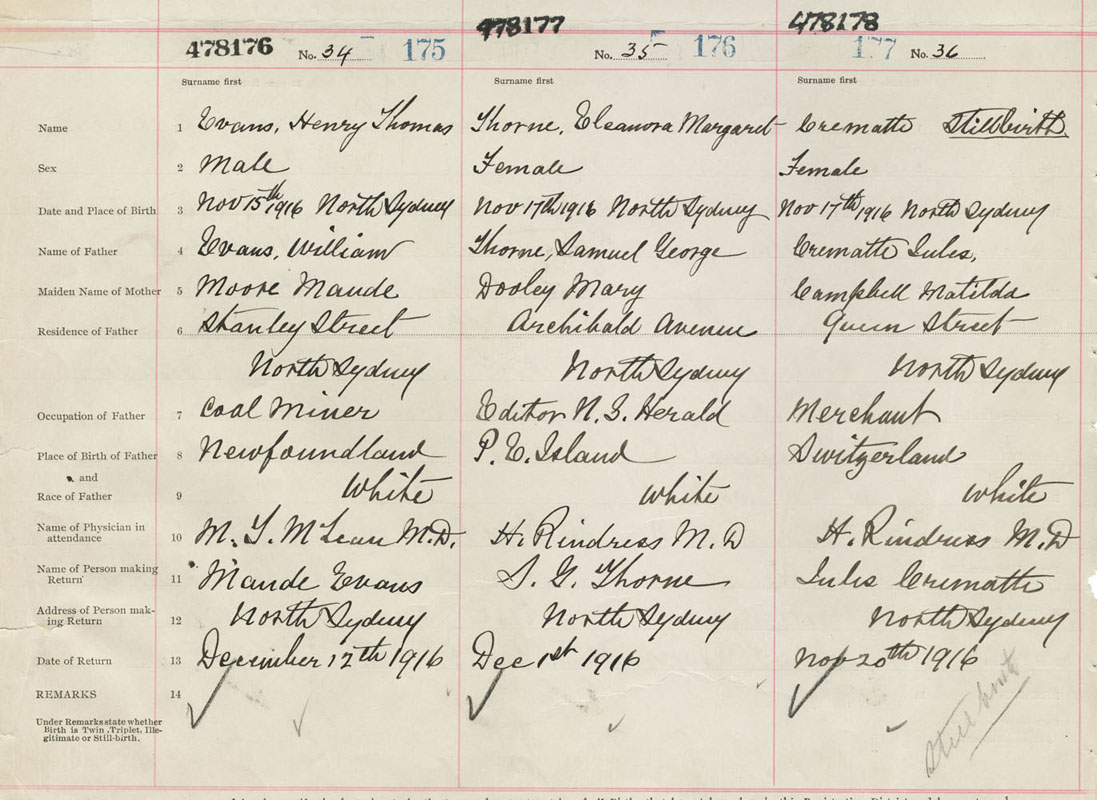 478176 No. 34 175 478177 No. 35 176 478178 177 No. 36
Surname first Surname first Surname first
Name 1 Evans, Henry Thomas Thorne, Eleanora Margaret Crematte Stillbirth
Sex 2 Male Female Female
Date and Place of Birth 3 Nov 15th 1916 North Sydney Nov 17th 1916 North Sydney Nov 17th 1916 North Sydney
Name of Father 4 Evans, William Thorne, Samuel George Crematte Jules,
Maiden Name of Mother 5 Moore Maude Dooley Mary Campbell Matilda
Residence of Father 6 Stanley Street Archibald Avenue Queen Street
North Sydney North Sydney North Sydney
Occupation of Father 7 Coal Miner Editor N. S. Herald Merchant
Place of Birth of Father 8 Newfoundland P. E. Island Switzerland
and
Race of Father 9 White White White
Name of Physician in
attendance 10 M. T. McLean M.D. H. Rindress M. D H. Rindress M. D
Name of Person making
Return 11 Maude Evans S. G. Thorne Jules Crematte
Address of Person mak-
ing Return 12 North Sydney North Sydney North Sydney
Date of Return 13 December 12th 1916 Dec 1st 1916 Nov 20th 1916
REMARKS 14 Still birth
Under Remarks state whether
Birth is Twin, Triplet, Ille-
gitimate or Still-birth.